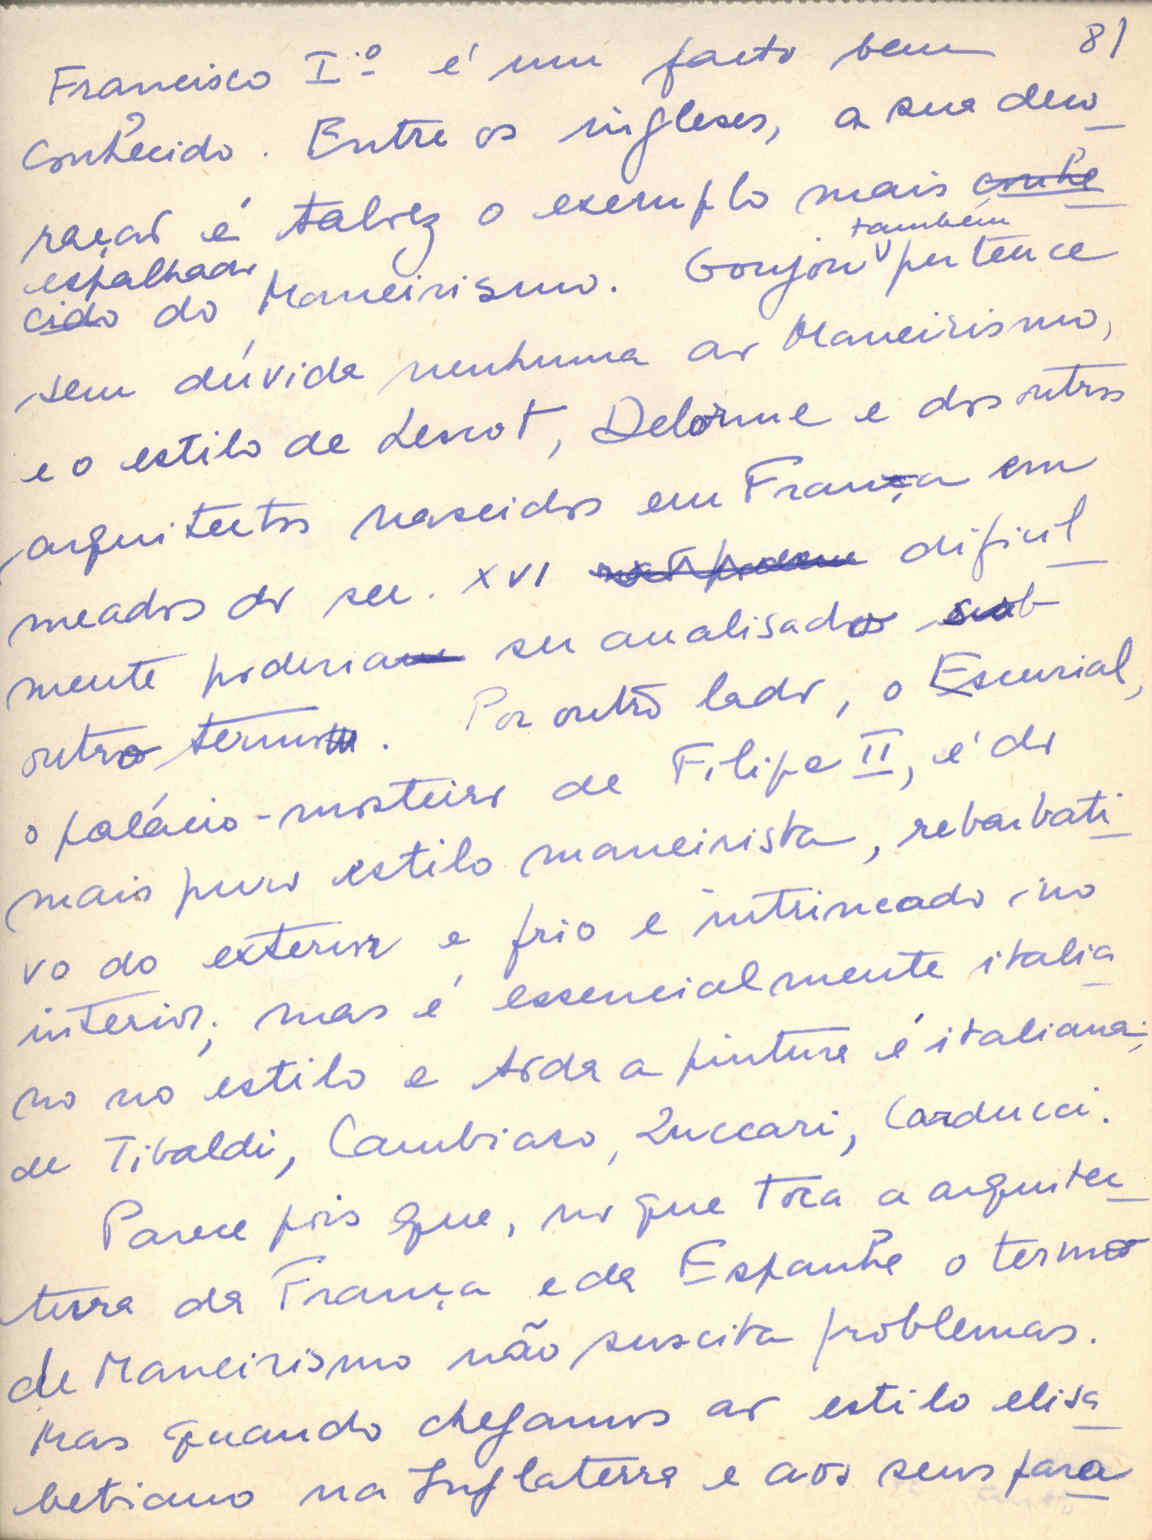 81
Francisco Iº é um facto bem
conhecido. Entre os ingleses, a sua deco
ração é talvez o exemplo mais conhe
espalhado
cido do Maneirismo. Goujon também pertence
sem dúvida nenhuma ao Maneirismo,
e o estilo de Lescot, Delorme e dos outros
arquitectos nascidos em França em
meados do sec. XVI não podem dificil
mente poderia ser analisado sob
outro termo. Por outro lado, o Escurial,
o palácio-mosteiro de Filipe II, é do
mais puro estilo maneirista, rebarbati
vo do exterior e frio e intrincado no
interior; mas é essencialmente italia
no no estilo e toda a pintura é italiana;
de Tibaldi, Cambiaso, Zuccari, Carducci.
Parece pois que, no que toca a arquitec
tura da França e da Espanha o termo
de Maneirismo não suscita problemas.
Mas quando chegamos ao estilo elisa
betiano na Inglaterra e aos seus para